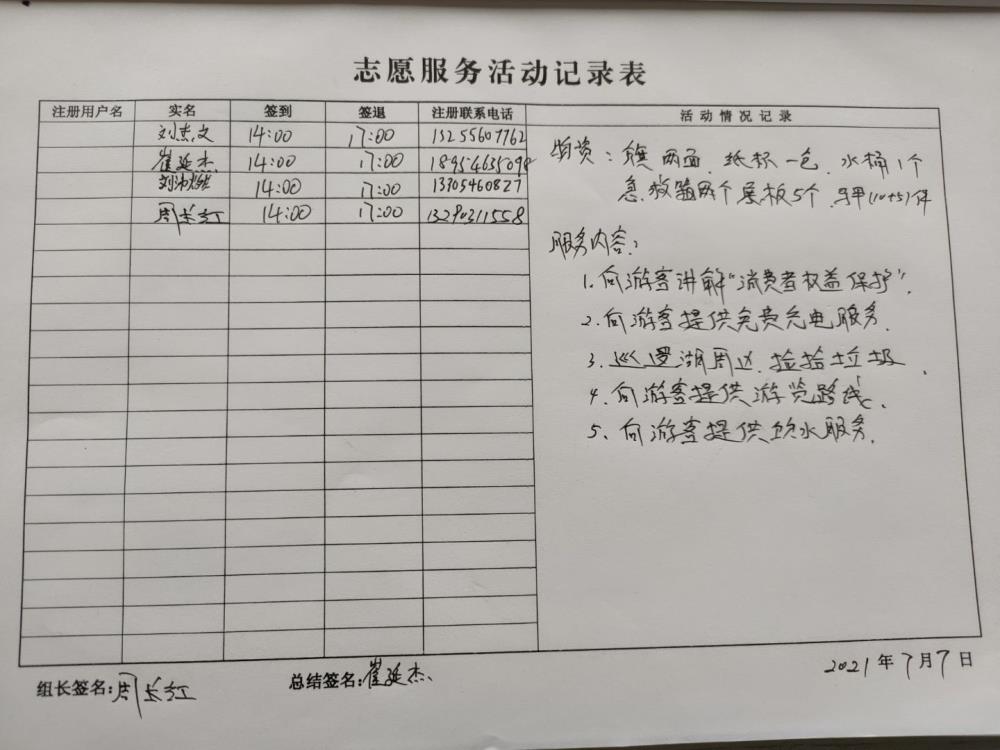 志愿服务活动记录表
注册用户名 实名 签到 签退 注册联系电话 活动情况记录
刘杰文 14:00 17:00 13255607762
崔延杰 14:00 17:00 18954635098
14:00 17:00 13305460827
周长红 14:00 17:00 13290311558
物资：旗 两面 纸杯一包 水桶1个
急救箱两个 展板5个 马甲(10+5)件
服务内容：
1.向游客讲解“消费者权益保护”.
2.向游客提供免费充电服务.
3.巡逻湖周边.捡拾垃圾.
4.向游客提供游览路线.
5、向游客提供饮水服务.
组长签名:周长红 总结签名:崔延杰、 2021年7月7日